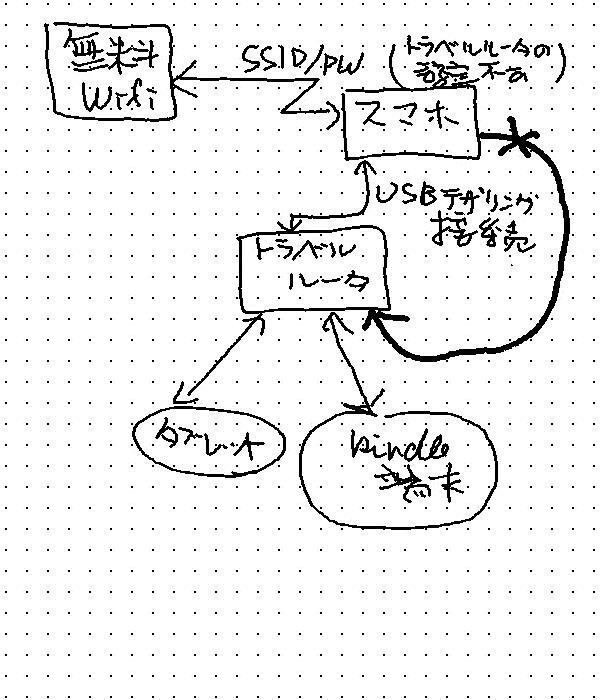 無料
Wifi
SSID/PW
(トラベルルータの
設定不可)
スマホ
USBテザリング
接続
トラベル
ルータ
タブレット
kindle
端末